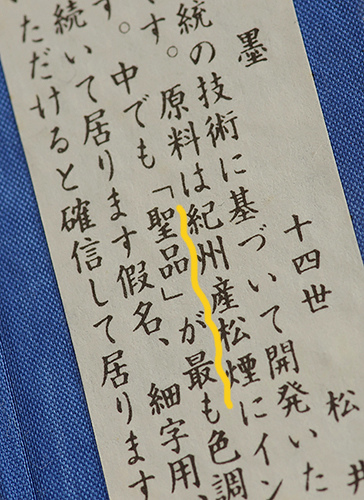 墨　十四世　松井
統の技術に基づいて開発いた
す。原料は紀州産松煙にイン
す。中でも「聖品」が最も色調
続いて居ります假名、細字用
ただけると確信して居ります